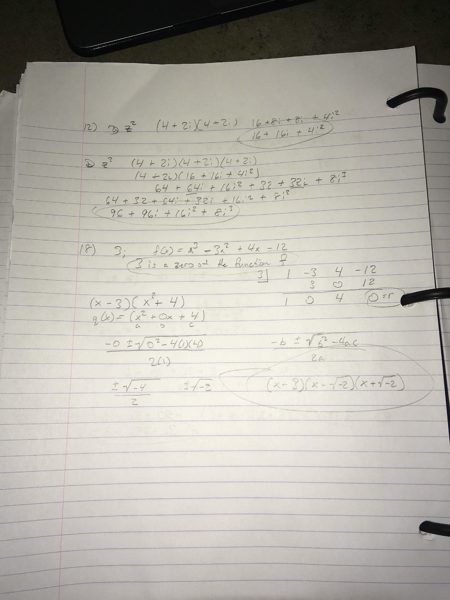 12) a) z² (4+2i)(4+2i) 16+8i+8i+4i²
16+16i+4i²
b) z³ (4+2i)(4+2i)(4+2i)
(4+2i)(16+16i+4i²)
64 + 64i + 16i² + 32 + 32i + 8i³
64 + 32 + 64i + 32i + 16i² + 8i³
96 + 96i + 16i² + 8i³
18) 3; f(x) = x³ - 3x² + 4x - 12
3 is a zero of the function
3| 1 -3 4 -12
3 0 12
1 0 4 0=r
(x-3)(x²+4)
q(x) = (x²+0x+4)
a b c
-0 ± √0²-4(1)(4)
2(1)
-b ± √b²-4ac
2a
±√-4
2
±√-2
(x-3)(x-√-2)(x+√-2)